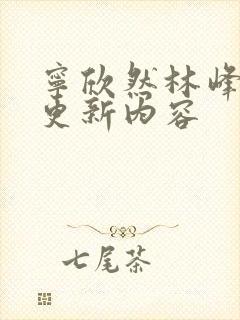 寧欣然林峰
更新内容
七尾茶